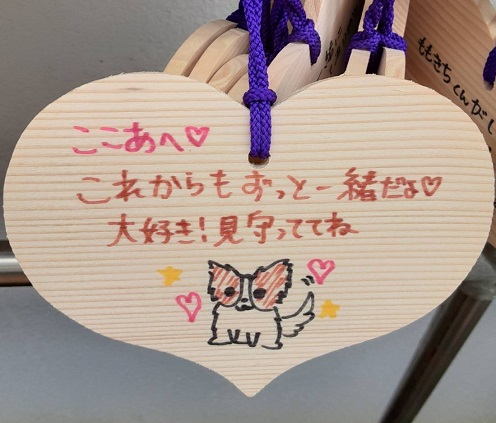 ここあへ♡
これからもずっと一緒だよ♡
大好き!見守っててね
ももきちくんがし